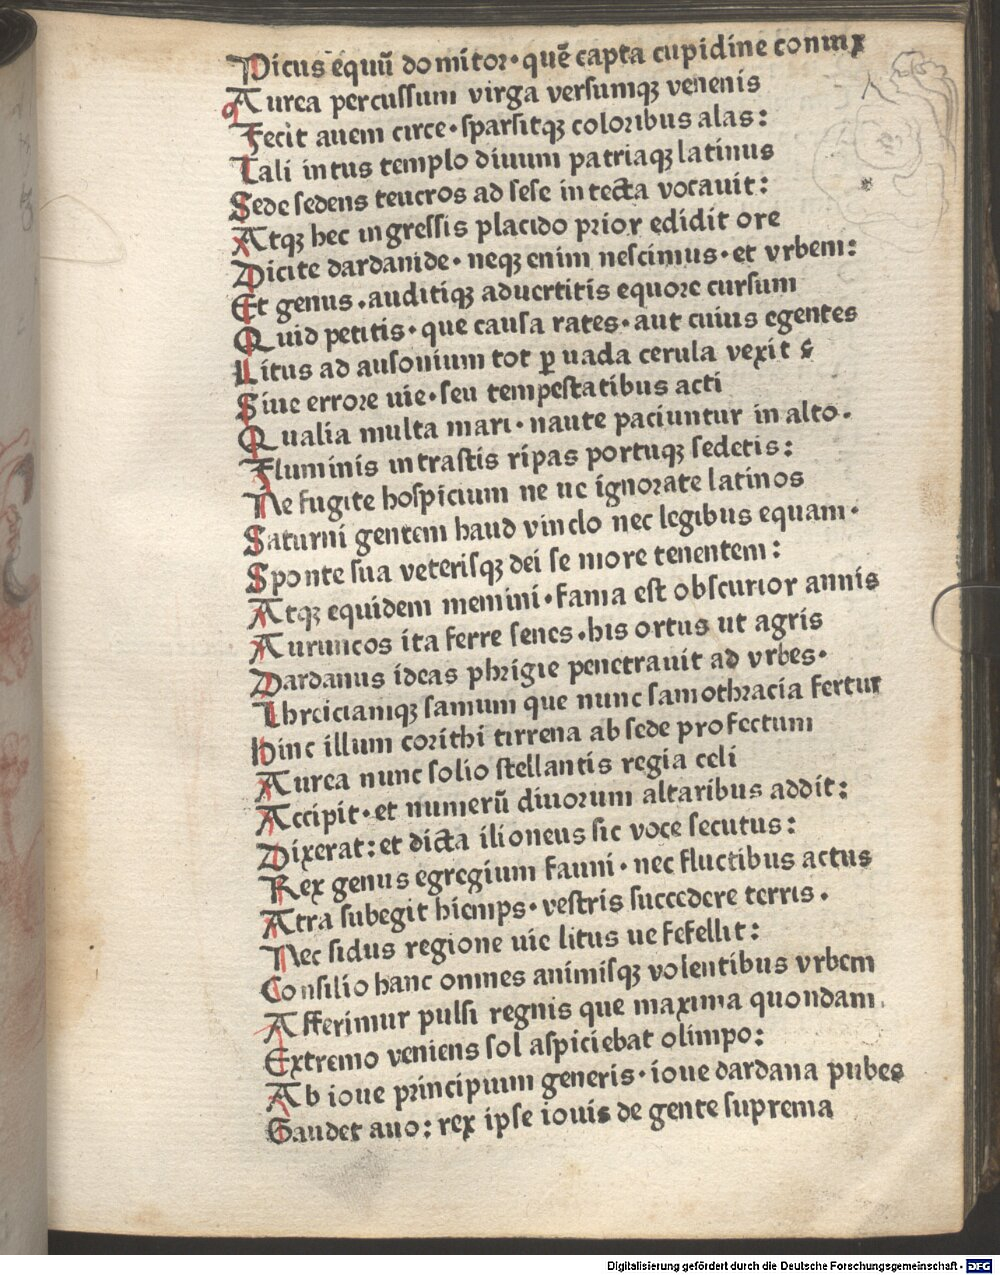 Picus equū domitor· quē capta cupidine coniux
Aurea percussum virga versumqꝫ venenis
Fecit auem circe· sparsitqꝫ coloribus alas:
Tali intus templo diuum patriaqꝫ latinus
Sede sedens teucros ad sese in tecta vocauit:
Atqꝫ hec ingressis placido prior edidit ore
Dicite dardanide· neqꝫ enim nescimus· et vrbem:
Et genus· auditiqꝫ aduertitis equore cursum
Quid petitis· que causa rates· aut cuius egentes
Litus ad ausonium tot ꝑ uada cerula vexit
Siue errore uie· seu tempestatibus acti
Qualia multa mari· naute paciuntur in alto·
Fluminis intrastis ripas portuqꝫ sedetis:
Ne fugite hospicium ne ue ignorate latinos
Saturni gentem haud vinclo nec legibus equam·
Sponte sua veterisqꝫ dei se more tenentem:
Atqꝫ equidem memini· fama est obscurior annis
Auruncos ita ferre senes· his ortus ut agris
Dardanus ideas phrigie penetrauit ad vrbes·
Threiciamqꝫ samum que nunc samothracia fertur
Hinc illum corithi tirrena ab sede profectum
Aurea nunc solio stellantis regia celi
Accipit· et numerū diuorum altaribus addit:
Dixerat: et dicta ilioneus sic voce secutus:
Rex genus egregium fauni· nec fluctibus actus
Atra subegit hiemps· vestris succedere terris·
Nec sidus regione uie litus ue fefellit:
Consilio hanc omnes animisqꝫ volentibus vrbem
Afferimur pulsi regnis que maxima quondam
Extremo veniens sol aspiciebat olimpo:
Ab ioue principium generis· ioue dardana pubes
Gaudet auo: rex ipse iouis de gente suprema
Digitalisierung gefördert durch die Deutsche Forschungsgemeinschaft - DFG